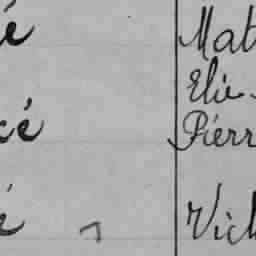 é Mat
Elie
cé Pierr
é Vict